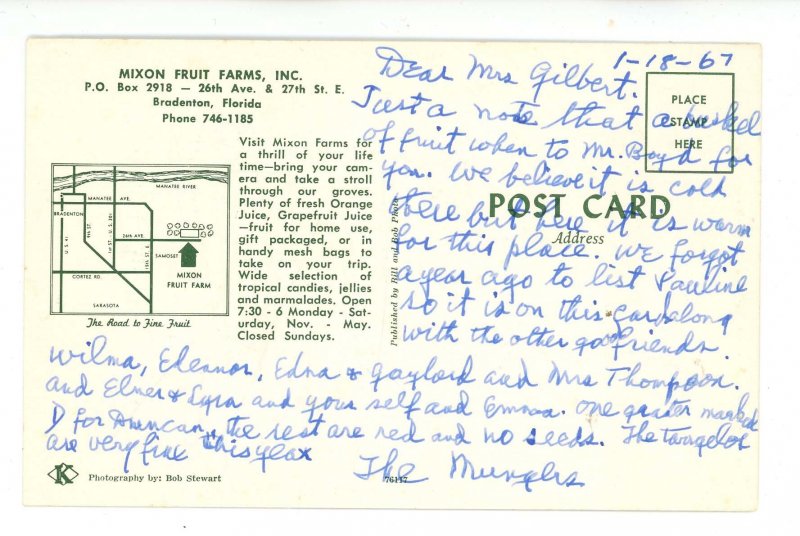 MIXON FRUIT FARMS, INC.
P.O. Box 2918 — 26th Ave. & 27th St. E.
Bradenton, Florida
Phone 746-1185
Visit Mixon Farms for
a thrill of your life
time—bring your cam-
era and take a stroll
through our groves.
Plenty of fresh Orange
Juice, Grapefruit Juice
—fruit for home use,
gift packaged, or in
handy mesh bags to
take on your trip.
Wide selection of
tropical candies, jellies
and marmalades. Open
7:30 - 6 Monday - Sat-
urday, Nov. - May.
Closed Sundays.
MANATEE RIVER
MANATEE AVE.
BRADENTON
U.S. 41
9th ST.
1st ST.
26th AVE.
15th ST. E
SAMOSET
CORTEZ RD.
MIXON
FRUIT FARM
SARASOTA
The Road to Fine Fruit
K
Photography by: Bob Stewart
76117
Published by Bill and Bob Photo
PLACE
STAMP
HERE
POST CARD
Address
1-18-67
Dear Mrs Gilbert.
Just a note that a bushel
of fruit when to Mr. Boyd for
you. We believe it is cold
there but here it is warm
for this place. We forgot
a year ago to list Pauline
so it is on this card along
with the other good friends.
Wilma, Eleanor, Edna & Gaylord and Mrs Thompson.
and Elmer & and your self and Emma. One marked
D for Duncan, the rest are red and no seeds. The
are very fine this year
The